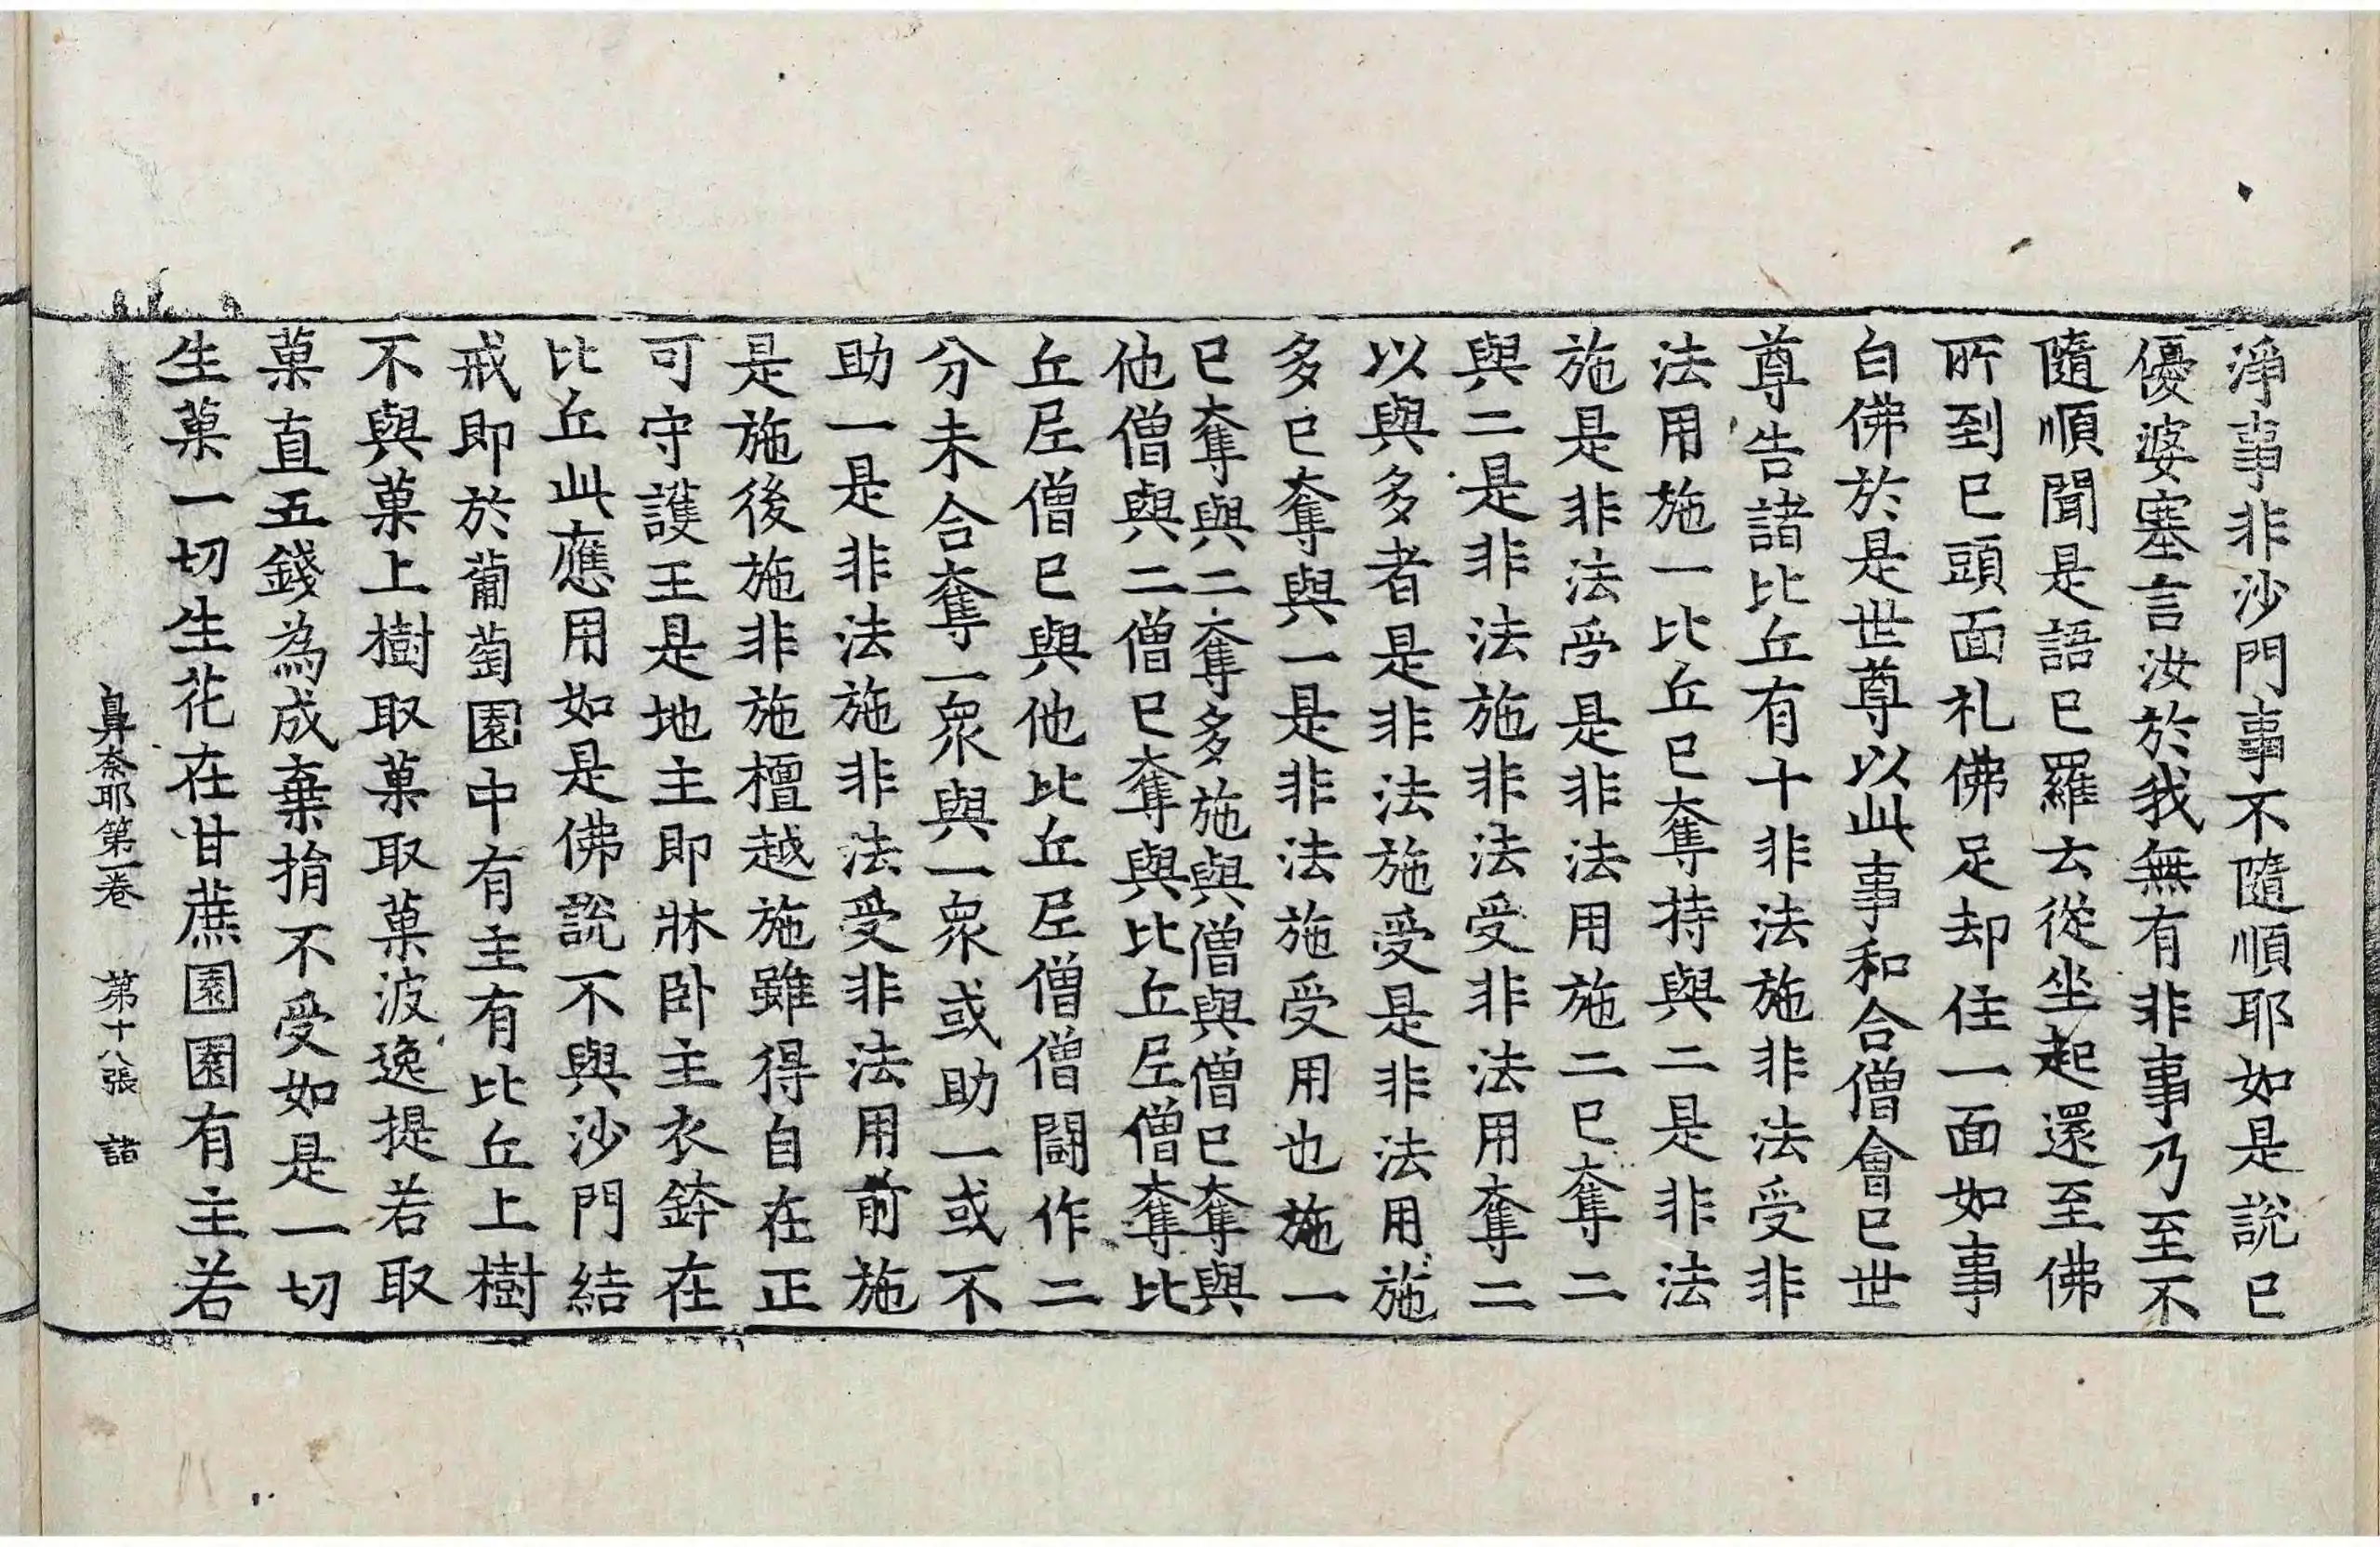 淨事非沙門事不隨順耶如是說已
優婆塞言汝於我無有非事乃至不
隨順聞是語已羅云從坐起還至佛
所到已頭面礼佛足却住一面如事
白佛於是世尊以此事和合僧會已世
尊告諸比丘有十非法施非法受非
法用施一比丘已奪持與二是非法
施是非法受是非法用施二已奪二
與二是非法施非法受非法用奪二
以與多者是非法施受是非法用施
多已奪與一是非法施受用也施一
已奪與二奪多施與僧與僧已奪與
他僧與二僧已奪與比丘尼僧奪比
丘尼僧已與他比丘尼僧僧鬪作二
分未合奪一衆與一衆或助一或不
助一是非法施非法受非法用前施
是施後施非施檀越施雖得自在正
可守護王是地主即牀卧主衣鉢在
比丘此應用如是佛說不與沙門結
戒即於葡萄園中有主有比丘上樹
不與菓上樹取菓取菓波逸提若取
菓直五錢為成棄捐不受如是一切
生菓一切生花在甘蔗園園有主若
鼻奈耶第一卷 第十八張 諸